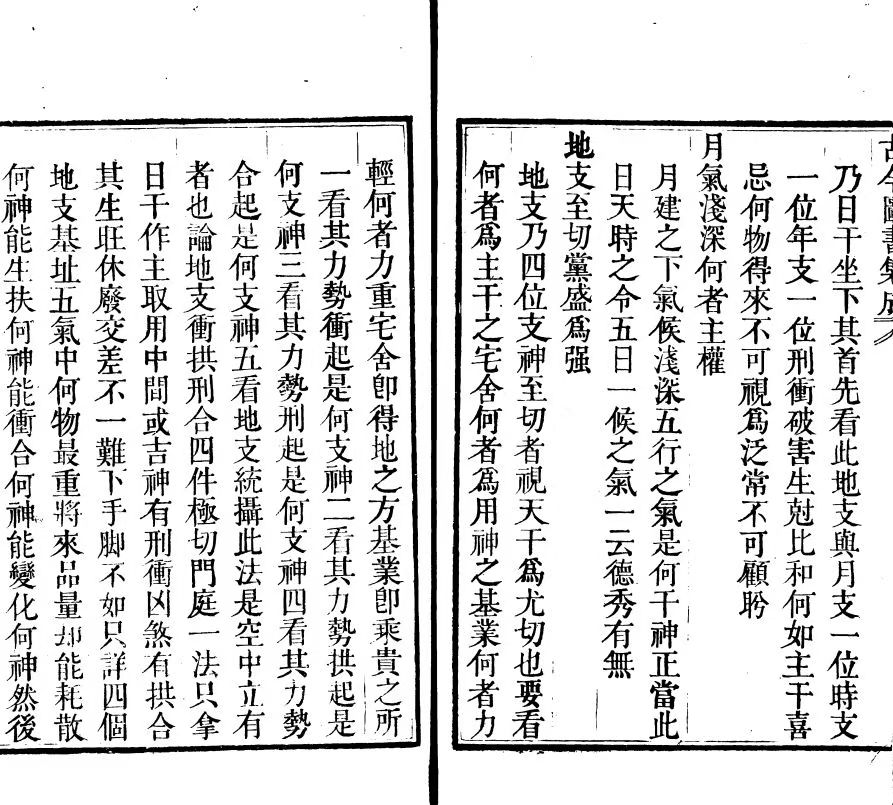 古今圖書集成
乃日干坐下其首先看此地支與月支一位時支
一位年支一位刑衝破害生尅比和何如主干喜
忌何物得來不可視爲泛常不可顧盻
月氣淺深何者主權
月建之下氣候淺深五行之氣是何干神正當此
日天時之令五日一候之氣一云德秀有無
地支至切黨盛爲强
地支乃四位支神至切者視天干爲尤切也要看
何者爲主干之宅舍何者爲用神之基業何者力
輕何者力重宅舍卽得地之方基業卽乘貴之所
一看其力勢衝起是何支神二看其力勢拱起是
何支神三看其力勢刑起是何支神四看其力勢
合起是何支神五看地支統攝此法是空中立有
者也論地支衝拱刑合四件極切門庭一法只拿
日干作主取用中間或吉神有刑衝凶煞有拱合
其生旺休廢交差不一難下手脚不如只詳四個
地支基址五氣中何物最重將來品量却能耗散
何神能生扶何神能衝合何神能變化何神然後